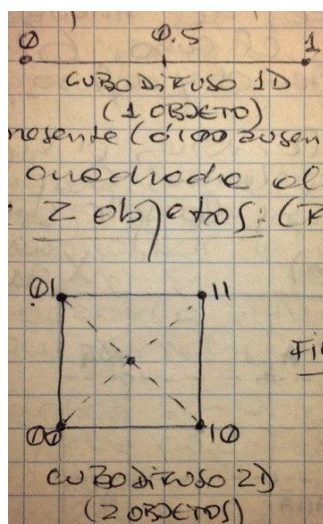 0 0.5 1
CUBO DIFUSO 1D
(1 OBJETO)
resente (ó 100 ausen
cuadrado al
2 objetos: (
01 11
00 10
CUBO DIFUSO 2D
(2 OBJETOS)